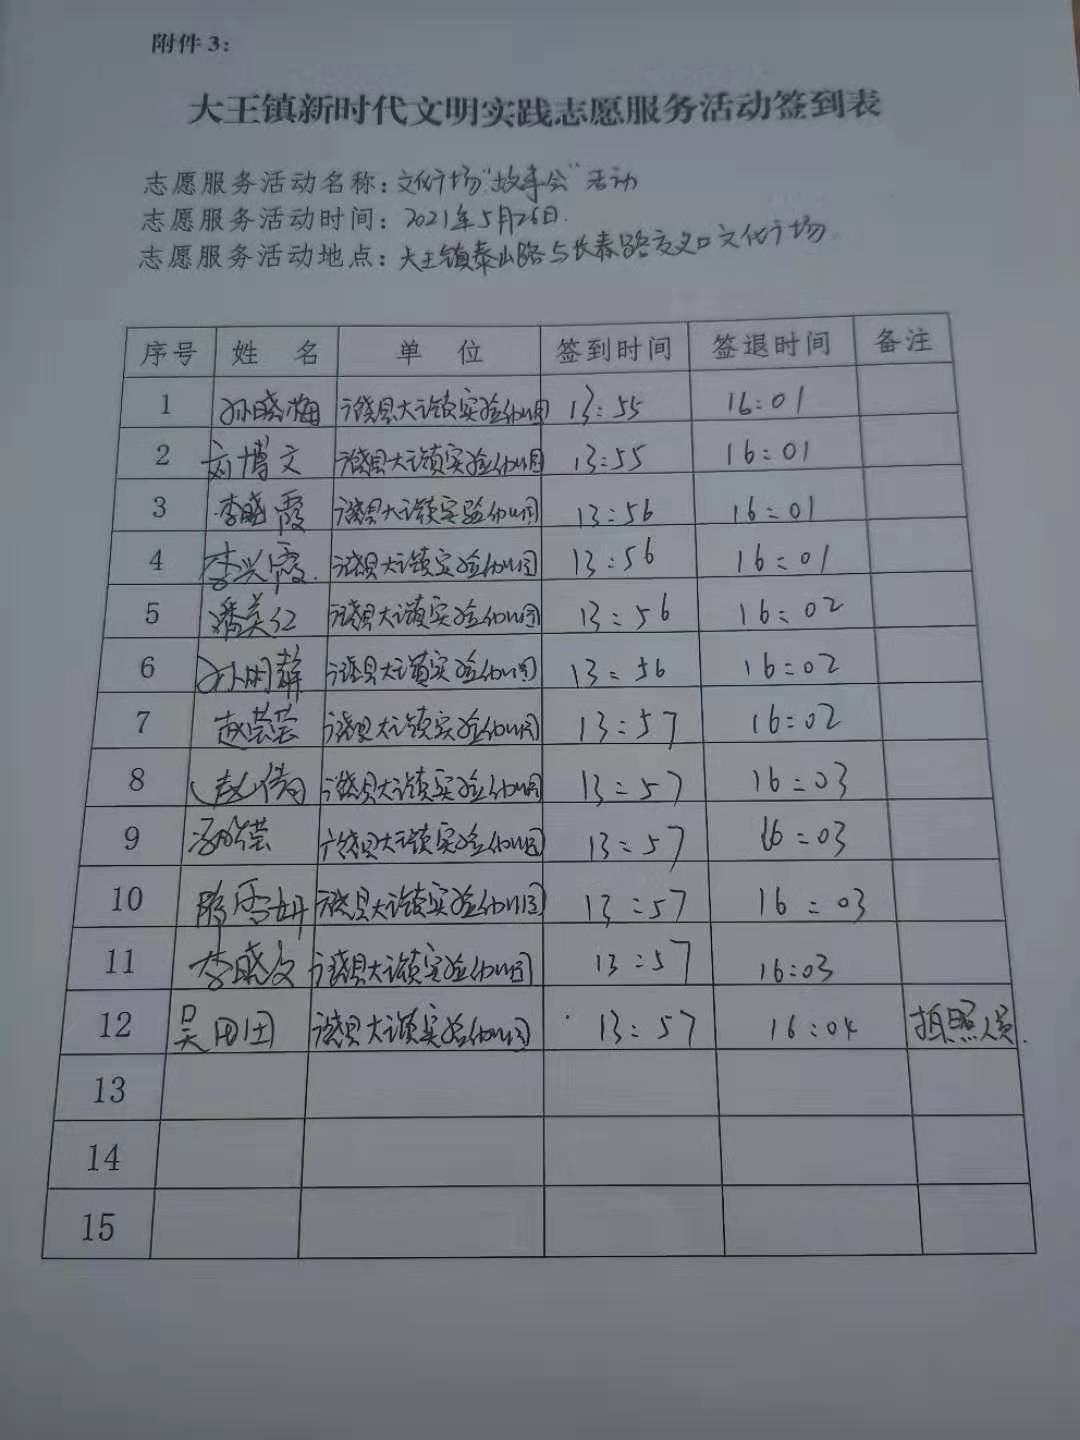 附件3：
大王镇新时代文明实践志愿服务活动签到表
志愿服务活动名称：文化广场"故事会"活动
志愿服务活动时间：2021年5月26日.
志愿服务活动地点：大王镇泰山路与长春路交叉口文化广场
序号 姓 名 单 位 签到时间 签退时间 备注
1 孙晓梅 饶县大王镇实验幼儿园 13:55 16:01
2 博文 饶县大王镇实验幼儿园 13:55 16:01
3 李晓霞 饶县大王镇实验幼儿园 13:56 16:01
4 李兴霞. 饶县大王镇实验幼儿园 13:56 16:01
5 潘美红 饶县大王镇实验幼儿园 13:56 16:02
6 孙闲静 饶县大王镇实验幼儿园 13:56 16:02
7 赵芸芸 饶县大王镇实验幼儿园 13:57 16:02
8 赵倩 饶县大王镇实验幼儿园 13:57 16:03
9 饶县大王镇实验幼儿园 13:57 16:03
10 雪妍 饶县大王镇实验幼儿园 13:57 16:03
11 李晓文 饶县大王镇实验幼儿园 13:57 16:03
12 吴田田 饶县大王镇实验幼儿园 13:57 16:04 拍照人员.
13
14
15